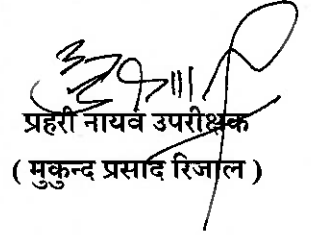 प्रहरी नायव उपरीक्षक
( मुकुन्द प्रसाद रिजाल )